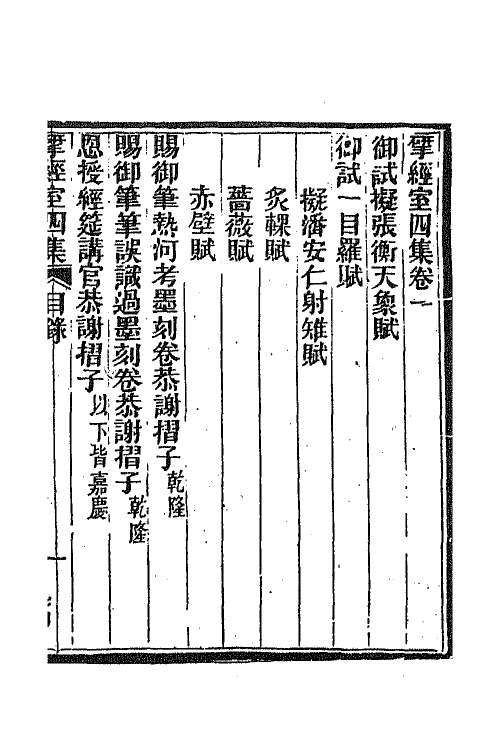 揅經室四集卷一
御試擬張衡天象賦
御試一目羅賦
擬潘安仁射雉賦
炙輠賦
薔薇賦
赤壁賦
賜御筆熱河考墨刻卷恭謝摺子乾隆
賜御筆筆誤識過墨刻卷恭謝摺子乾隆
恩授經筵講官恭謝摺子以下皆嘉慶
揅經室四集 目錄 一